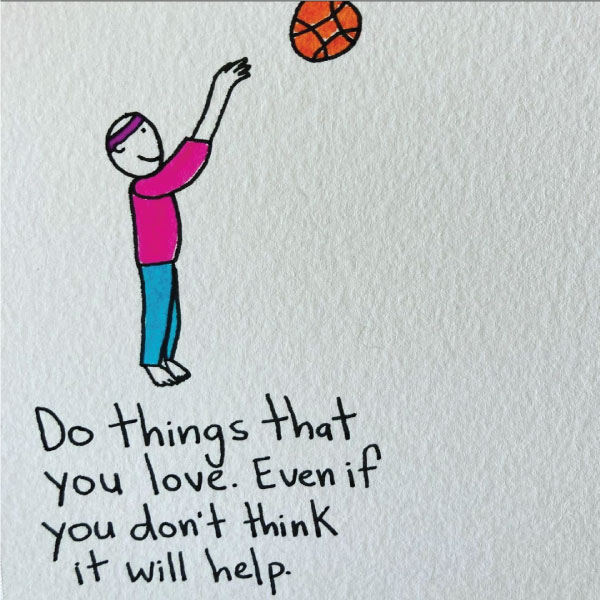 Do things that
you love. Even if
you don't think
it will help.